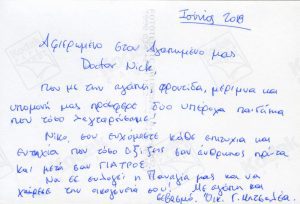 Ιούνιος 2018
Αφιερωμένο στον Αγαπημένο μας
Doctor Nick,
που με την αγάπη, φροντίδα, μέριμνα και
υπομονή μας πρόσφερε δύο υπέροχα παιδάκια
που τόσο λαχταρούσαμε!
Νίκο, σου ευχόμαστε κάθε επιτυχία και
ευτυχία που τόσο αξίζεις σαν άνθρωπος πρώτα
και μετά σαν ΓΙΑΤΡΟΣ.
Να σε ευλογεί η Παναγία μας και να
χαίρεσαι την οικογένειά σου! Με αγάπη και
σεβασμό, Οικ. Γ.